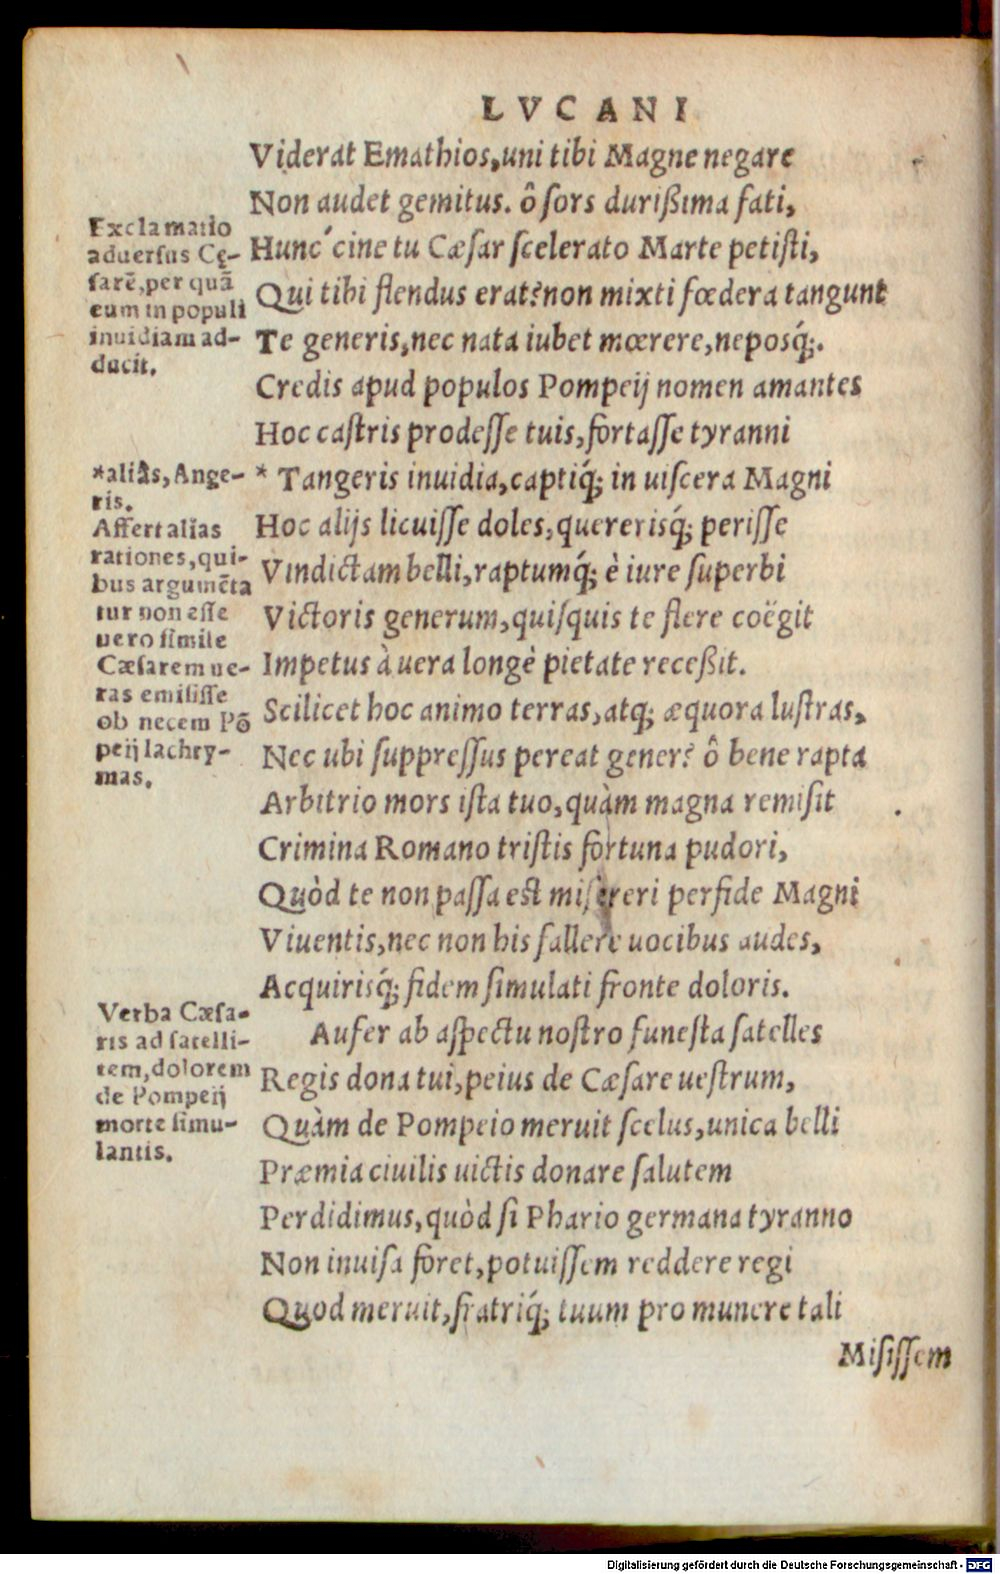 LVCANI
Viderat Emathios, uni tibi Magne negare
Non audet gemitus. ô ſors durißima fati,
Hunc´cine tu Cæſar ſcelerato Marte petiſti,
Qui tibi flendus erat? non mixti fœdera tangunt
Te generis, nec nata iubet mœrere, neposq́;.
Credis apud populos Pompeij nomen amantes
Hoc caſtris prodeſſe tuis, fortaſſe tyranni
* Tangeris inuidia, captiq́; in uiſcera Magni
Hoc alijs licuiſſe doles, quererisq́; periſſe
Vindictam belli, raptumq́; è iure ſuperbi
Victoris generum, quiſquis te flere coëgit
Impetus à uera longè pietate receßit.
Scilicet hoc animo terras, atq; æquora luſtras,
Nec ubi ſuppreſſus pereat gener? ô bene rapta
Arbitrio mors iſta tuo, quàm magna remiſit
Crimina Romano triſtis fortuna pudori,
Quòd te non paſſa eſt miſereri perfide Magni
Viuentis, nec non his fallere uocibus audes,
Acquirisq́; fidem ſimulati fronte doloris.
Aufer ab aſpectu noſtro funeſta ſatelles
Regis dona tui, peius de Cæſare ueſtrum,
Quàm de Pompeio meruit ſcelus, unica belli
Præmia ciuilis uictis donare ſalutem
Perdidimus, quòd ſi Phario germana tyranno
Non inuiſa foret, potuiſſem reddere regi
Quod meruit, fratriq́; tuum pro munere tali
Miſiſſem
Exclamatio
aduerſus Cę-
ſarē, per quā
eum in populi
inuidiam ad-
ducit.
*aliâs, Ange-
ris.
Affert alias
rationes, qui-
bus argumēta
tur non eſſe
uero ſimile
Cæſarem ue-
ras emiſiſſe
ob necem Pō
peij lachry-
mas.
Verba Cæſa-
ris ad ſatelli-
tem, dolorem
de Pompeij
morte ſimu-
lantis.
Digitalisierung gefördert durch die Deutsche Forschungsgemeinschaft - DFG